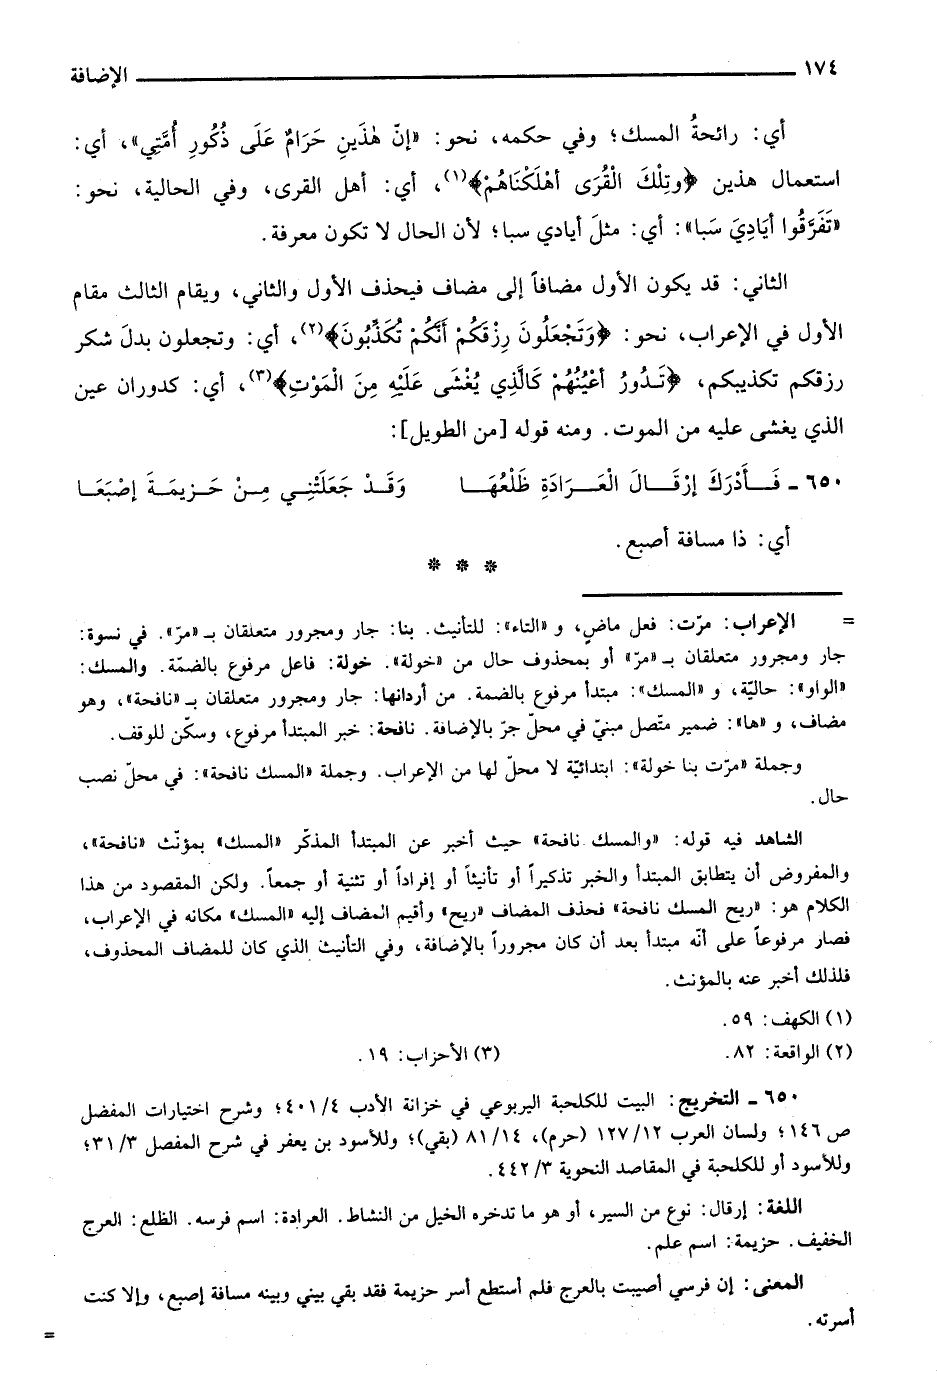 ١٧٤ الإضافة
أي: رائحةُ المسك؛ وفي حكمه، نحو: «إنّ هٰذَينِ حَرَامٌ عَلَى ذُكُورِ أُمَّتِي»، أي:
استعمال هذين ﴿وتِلْكَ الْقُرَى أهْلَكْنَاهُمْ﴾(١)، أي: أهل القرى، وفي الحالية، نحو:
«تَفَرَّقُوا أيَادِيَ سَبا»: أي: مثلَ أيادي سبا؛ لأن الحال لا تكون معرفة.
الثاني: قد يكون الأول مضافاً إلى مضاف فيحذف الأول والثاني، ويقام الثالث مقام
الأول في الإعراب، نحو: ﴿وَتَجْعَلُونَ رِزْقَكُمْ أَنَّكُمْ تُكَذِّبُونَ﴾(٢)، أي: وتجعلون بدلَ شكر
رزقكم تكذيبكم، ﴿تَدُورُ أعْيُنُهُمْ كَالَّذِي يُغْشَى عَلَيْهِ مِنَ الْمَوْتِ﴾(٣)، أي: كدوران عين
الذي يغشى عليه من الموت. ومنه قوله [من الطويل]:
٦٥٠ ـ فَـأَدْرَكَ إرْقَـالَ الْعَـرَادَةِ ظَلْعُهَـا وَقَـدْ جَعَلَتْنِـي مِـنْ حَـزِيمَـةَ إصْبَعَـا
أي: ذا مسافة أصبع.
* * *
= الإعراب: مرّت: فعل ماضٍ، و «التاء»: للتأنيث. بنا: جار ومجرور متعلقان بـ «مرّ». في نسوة:
جار ومجرور متعلقان بـ «مرّ» أو بمحذوف حال من «خولة». خولة: فاعل مرفوع بالضمّة. والمسك:
«الواو»: حاليّة، و «المسك»: مبتدأ مرفوع بالضمة. من أردانها: جار ومجرور متعلقان بـ «نافحة»، وهو
مضاف، و «ها»: ضمير متّصل مبنيّ في محلّ جرّ بالإضافة. نافحة: خبر المبتدأ مرفوع، وسكّن للوقف.
وجملة «مرّت بنا خولة»: ابتدائيّة لا محلّ لها من الإعراب. وجملة «المسك نافحة»: في محلّ نصب
حال.
الشاهد فيه قوله: «والمسك نافحة» حيث أخبر عن المبتدأ المذكّر «المسك» بمؤنّث «نافحة»،
والمفروض أن يتطابق المبتدأ والخبر تذكيراً أو تأنيثاً أو إفراداً أو تثنية أو جمعاً. ولكن المقصود من هذا
الكلام هو: «ريح المسك نافحة» فحذف المضاف «ريح» وأقيم المضاف إليه «المسك» مكانه في الإعراب،
فصار مرفوعاً على أنّه مبتدأ بعد أن كان مجروراً بالإضافة، وفي التأنيث الذي كان للمضاف المحذوف،
فلذلك أخبر عنه بالمؤنث.
(١) الكهف: ٥٩.
(٢) الواقعة: ٨٢. (٣) الأحزاب: ١٩.
٦٥٠ ـ التخريج: البيت للكلحبة اليربوعي في خزانة الأدب ٤/٤٠١؛ وشرح اختيارات المفضل
ص١٤٦؛ ولسان العرب ١٢/١٢٧ (حرم)، ١٤/٨١ (بقي)؛ وللأسود بن يعفر في شرح المفصل ٣/٣١؛
وللأسود أو للكلحبة في المقاصد النحوية ٣/٤٤٢.
اللغة: إرقال: نوع من السير، أو هو ما تدخره الخيل من النشاط. العرادة: اسم فرسه. الظلع: العرج
الخفيف. حزيمة: اسم علم.
المعنى: إن فرسي أصيبت بالعرج فلم أستطع أسر حزيمة فقد بقي بيني وبينه مسافة إصبع، وإلا كنت
أسرته. =